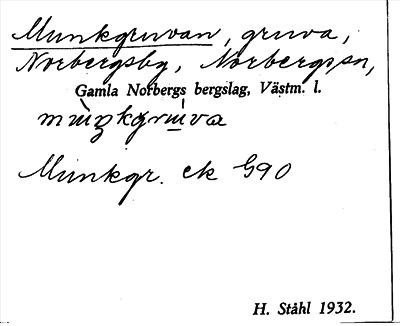 Munkgruvan, gruva,
Norbergsby, Norbergs sn,
Gamla Norbergs bergslag, Västm. l.
Munkgr. ek G90
H. Ståhl 1932.